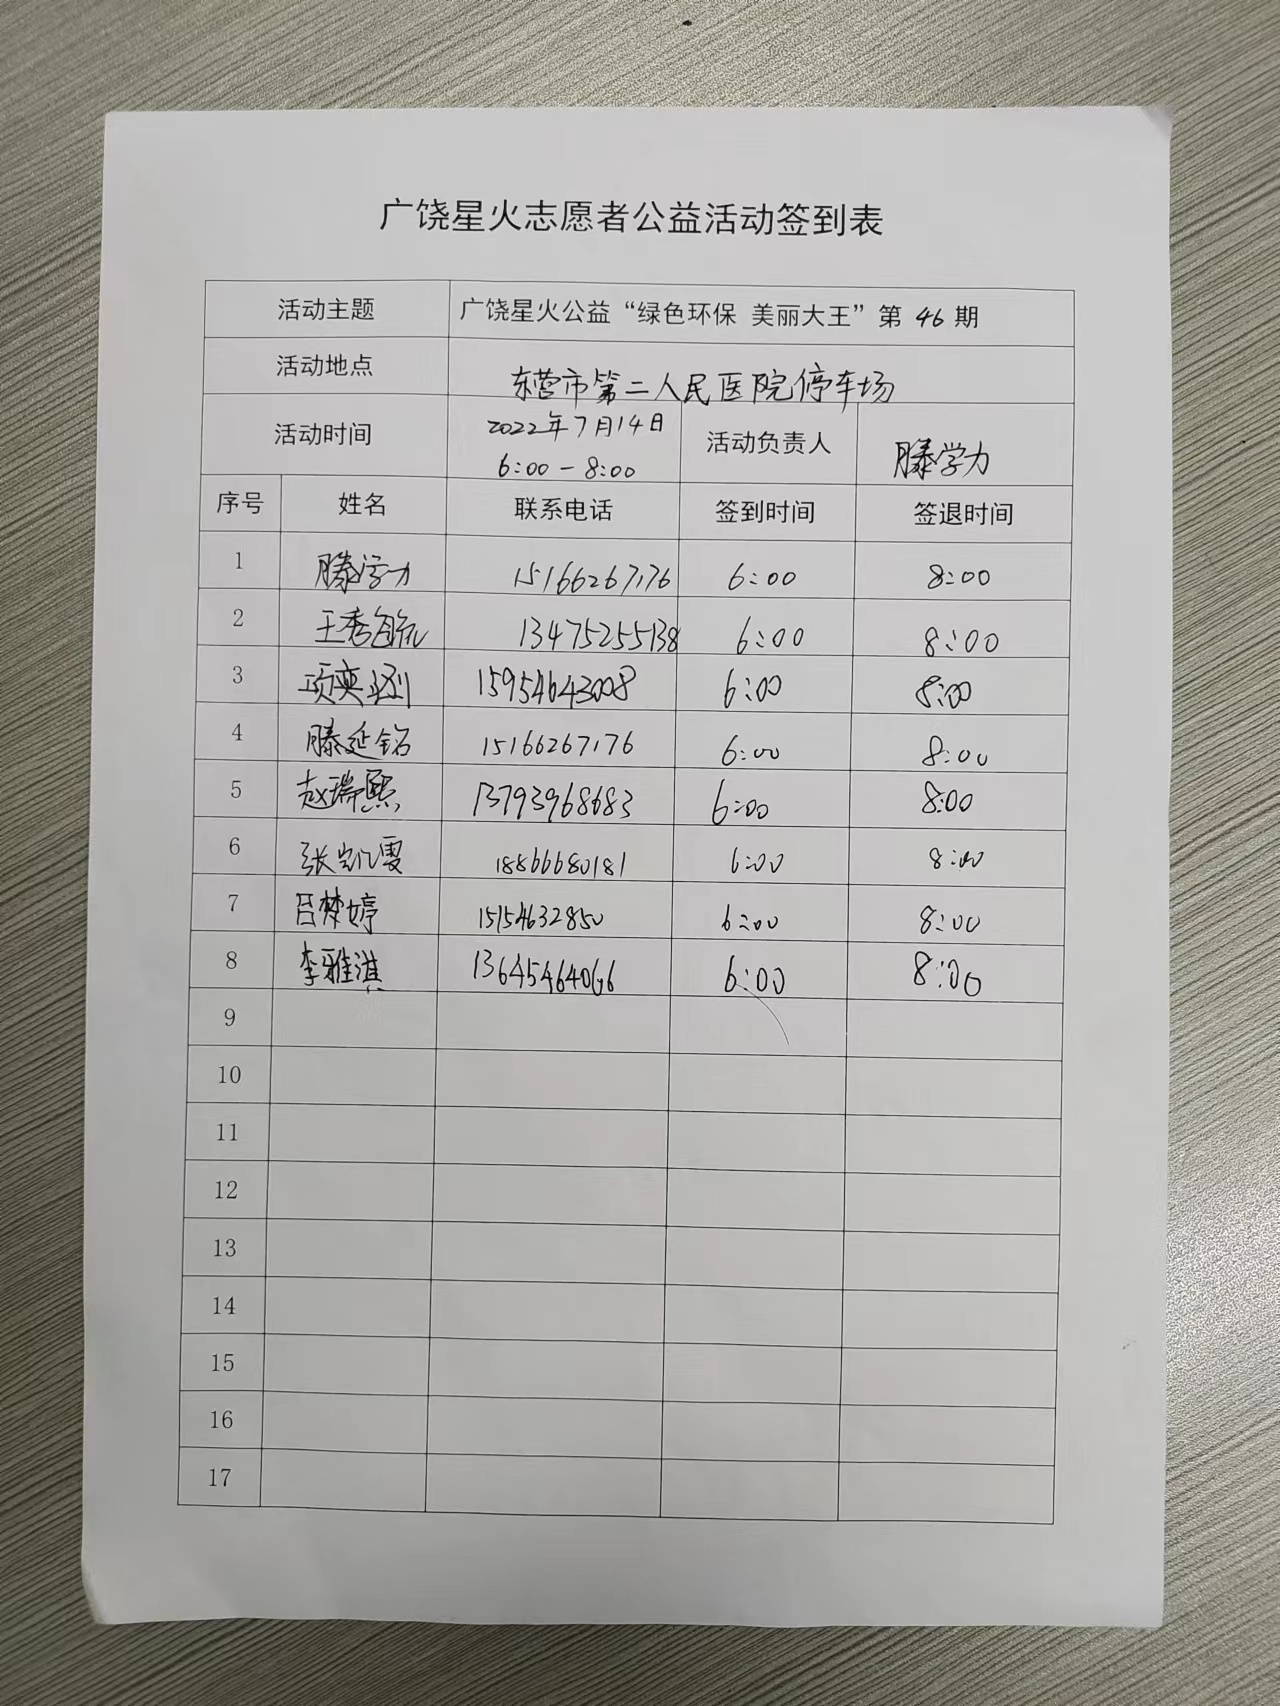 广饶星火志愿者公益活动签到表
活动主题 广饶星火公益“绿色环保 美丽大王”第 46 期
活动地点 东营市第二人民医院停车场
活动时间 2022年7月14日 6:00-8:00 活动负责人 滕学力
序号 姓名 联系电话 签到时间 签退时间
1 滕学力 15166267176 6:00 8:00
2 王秀 13475255138 6:00 8:00
3 项奕 15954643008 6:00 8:00
4 滕延铭 15166267176 6:00 8:00
5 赵瑞熙 13793968683 6:00 8:00
6 张凯雯 18866680181 6:00 8:00
7 吕梦婷 15154632850 6:00 8:00
8 李雅淇 13645464066 6:00 8:00
9
10
11
12
13
14
15
16
17